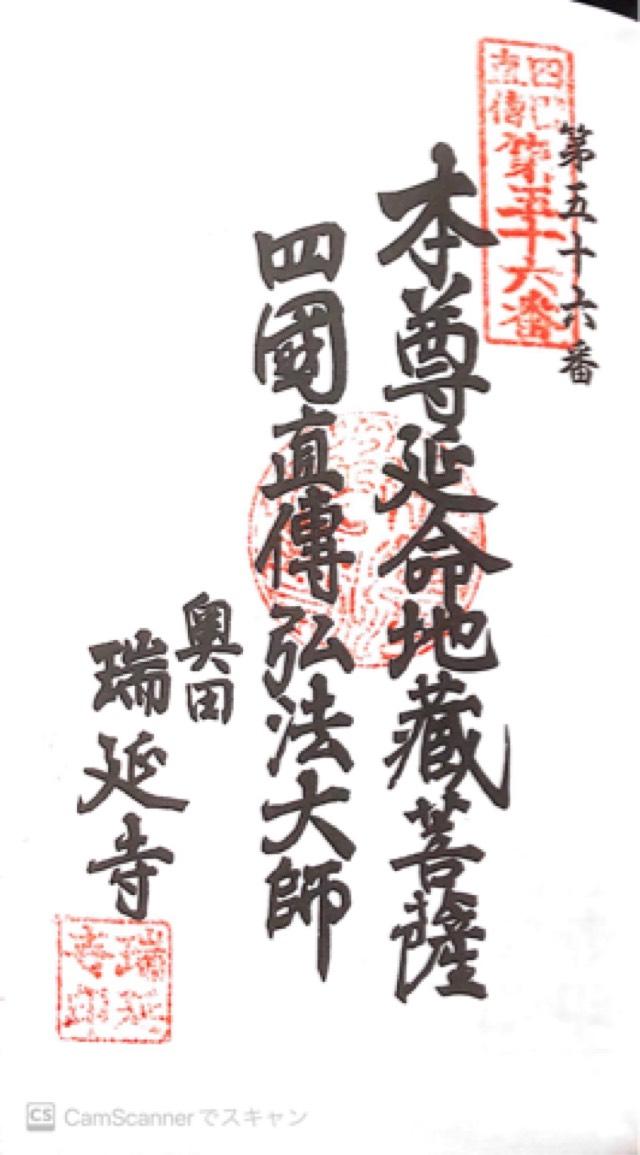 第五十六番
四國
直傳
第五十六番
本尊延命地蔵菩薩
四國直傳弘法大師
奥田
瑞延寺
瑞延
寺印
CS CamScannerでスキャン